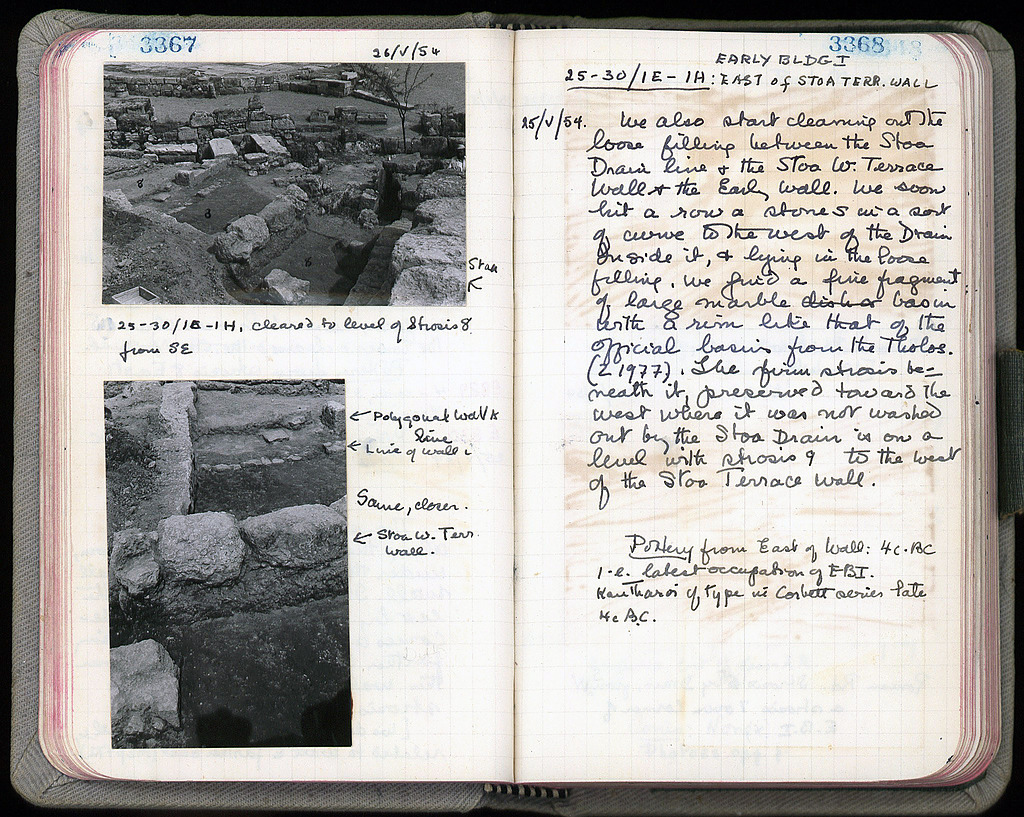 3367
26/V/54
Stoa
25-30/1E-1H, cleared to level of Strosis 8,
from SE
← Polygonal Wall &
line
← Line of wall i
Same, closer.
← Stoa W. Terr.
wall.
3368
EARLY BLDG I
25-30/1E-1H: EAST of STOA TERR. WALL
25/V/54. We also start cleaning out the
loose filling between the Stoa
Drain line & the Stoa W. Terrace
Wall & the Early wall. We soon
hit a row a stones in a sort
of curve to the west of the Drain
inside it, & lying in the loose
filling, we find a fine fragment
of large marble dish or basin
with a rim like that of the
official basins from the Tholos.
(Σ 1977). The firm strosis be-
neath it, preserved toward the
west where it was not washed
out by the Stoa Drain is on a
level with strosis 9 to the west
of the Stoa Terrace wall.
Pottery from East of Wall: 4c. BC
i.e. latest occupation of EBI.
Kantharos of type in Corbett series late
4c B.C.